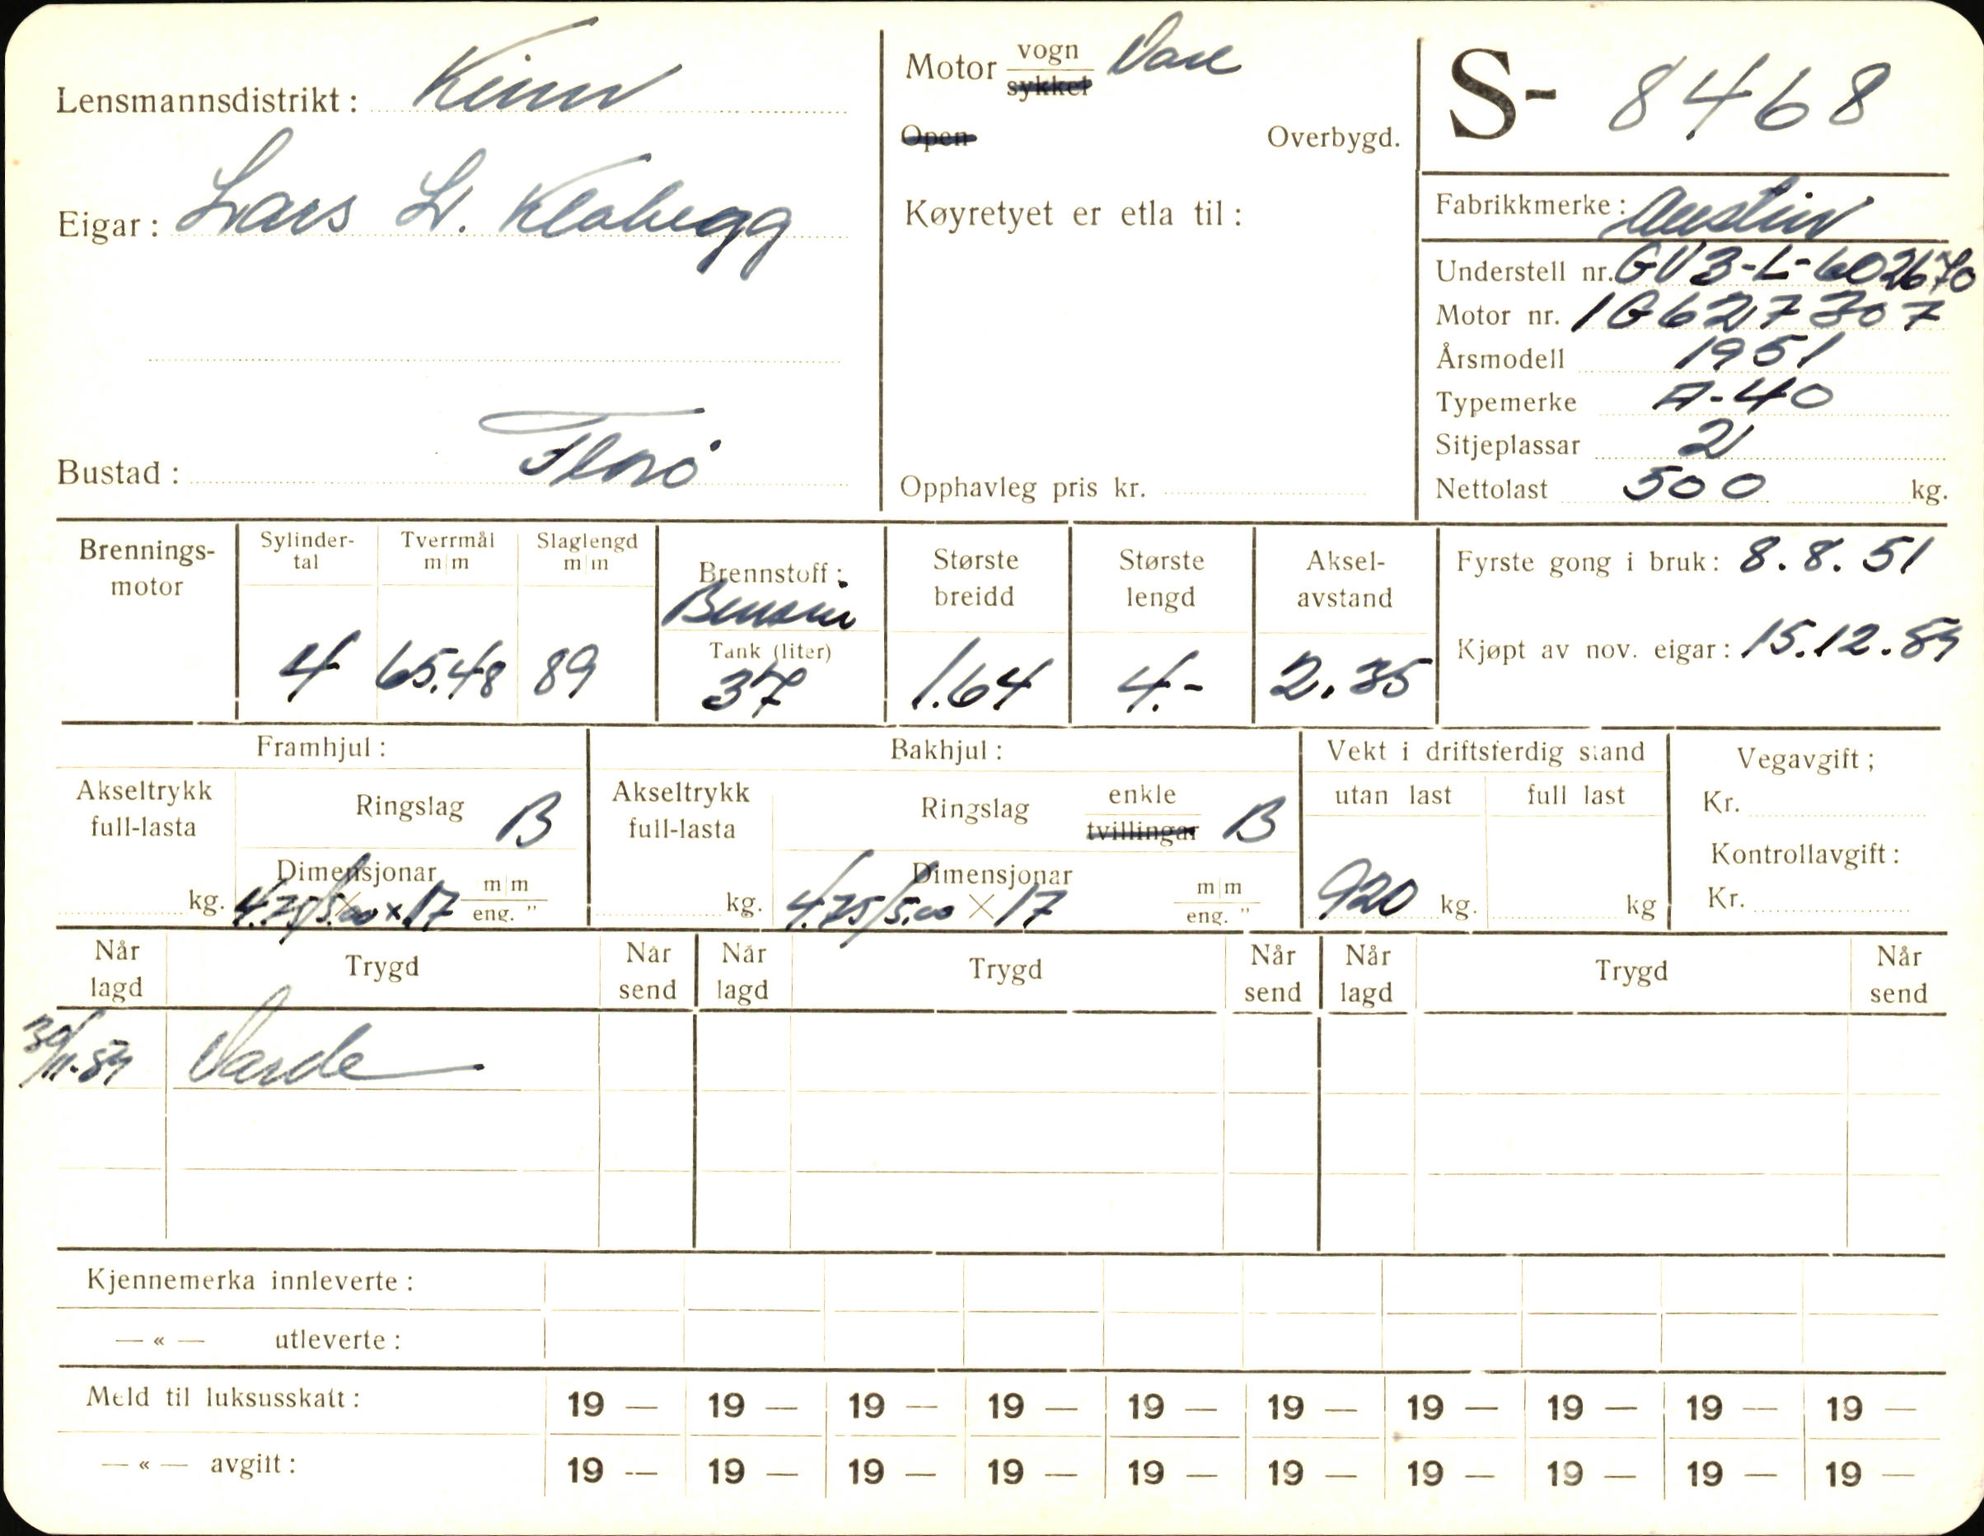 Lensmannsdistrikt: Kinn
Eigar: Lars L. Klabegg
Bustad: Florö
Motor vogn Vare
sykkel
Open Overbygd.
Køyretyet er etla til:
Opphavleg pris kr.
S- 8468
Fabrikkmerke: Austin
Understell nr. GV3-L-602670
Motor nr. 1G627307
Årsmodell 1951
Typemerke A-40
Sitjeplassar 2
Nettolast 500 kg.
Brennings-
motor
Sylinder-
tal
4
Tverrmål
m|m
65.48
Slaglengd
m|m
89
Brennstoff:
Bensin
Tank (liter)
37
Største
breidd
1.64
Største
lengd
4.-
Aksel-
avstand
2.35
Fyrste gong i bruk: 8.8.51
Kjøpt av nov. eigar: 15.12.54
Framhjul:
Akseltrykk
full-lasta
kg.
Ringslag B
Dimensjonar
4.75/5.00 x 17 m|m
eng. "
Bakhjul:
Akseltrykk
full-lasta
kg.
Ringslag enkle
tvillingar B
Dimensjonar
4.75/5.00 × 17 m|m
eng. "
Vekt i driftsferdig stand
utan last full last
920 kg. kg
Vegavgift;
Kr.
Kontrollavgift:
Kr.
Når
lagd
Trygd
Når
send
Når
lagd
Trygd
Når
send
Når
lagd
Trygd
Når
send
30/11-54 Varde
Kjennemerka innleverte:
— « — utleverte:
Meld til luksusskatt: 19 — 19 — 19 — 19 — 19 — 19 — 19 — 19 — 19 — 19 —
— « — avgitt: 19 — 19 — 19 — 19 — 19 — 19 — 19 — 19 — 19 — 19 —